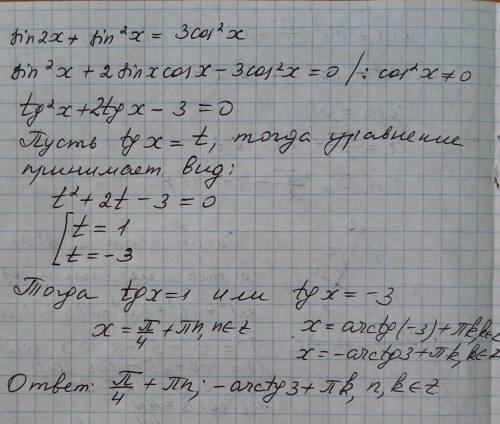 sin2x + sin²x = 3cos²x
sin²x + 2sinxcosx - 3cos²x = 0 /: cos²x ≠ 0
tg²x + 2tgx - 3 = 0
Пусть tgx = t, тогда уравнение
принимает вид:
t² + 2t - 3 = 0
[ t = 1
t = -3
Тогда tgx = 1 или tgx = -3
x = π/4 + πn, n∈z x = arctg(-3) + πk, k∈z
x = -arctg3 + πk, k∈z
Ответ: π/4 + πn; -arctg3 + πk, n, k∈z